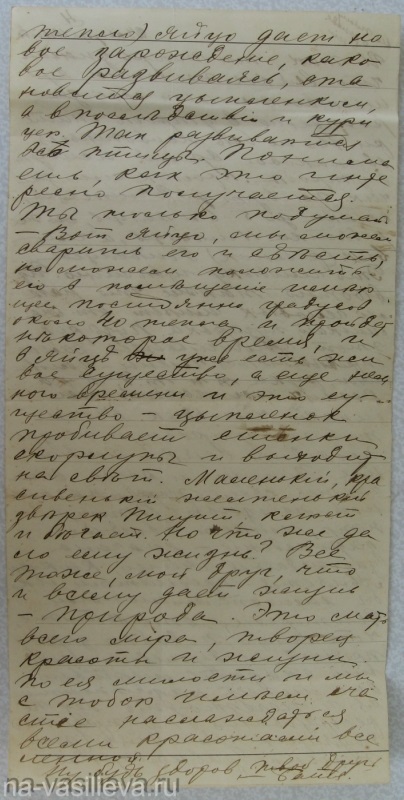 тепло) яйцо дает но
вое зарождение, како
вое развиваясь, ста
новится цыпленком,
а впоследствии и кури
цей. Так развиваются
все птицы. Понима
ешь, как это инте
ресно получается.
Ты только подумай
– Вот яйцо, мы можем
сварить его и съѣсть,
но можем положить
его в помещение имею
щее постоянно градусов
около 40 тепла и пройдет
нѣкоторое время, и
в яйцѣ уже есть жи
вое существо, а еще нем
ного времени и это су-
щество – цыпленок
пробивает стенки
скорлупы и выходит
на свѣт. Маленький, кра
сивенький желтенький
зверек пищит
и бегает. Но что же да
ло ему жизнь? Все
тоже, мой друг, что
и всему дает жизнь
– природа. Это мать
всего мира, творец
красоты и жизни.
По ея милости и мы
с тобою имеем сча
стье наслаждаться
всеми красотами все
ленной.
Ну будь здоров твой друг
na-vasilieva.ru